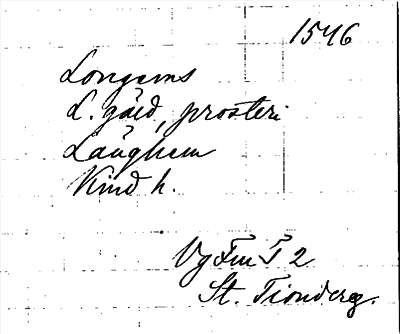 1546
Longerns
L. gård, prosteri
Länghem
Kind h.
Vg Fm T 2
St. Tionderg.